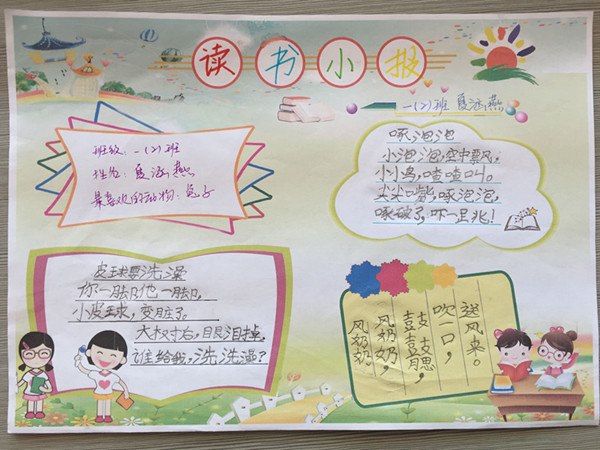 读书小报
一(2)班 夏涵燕
班级:一(2)班
姓名:夏涵燕
最喜欢的动物:兔子
啄泡泡
小泡泡,空中飘。
小小鸟,喳喳叫。
尖尖嘴,啄泡泡,
啄破了,吓一跳!
皮球要洗澡
你一脚,他一脚,
小皮球,变脏了。
大树右,眼泪掉,
谁给我,洗洗澡?
风奶奶
风奶奶,
鼓鼓腮,
吹一口,
送风来。